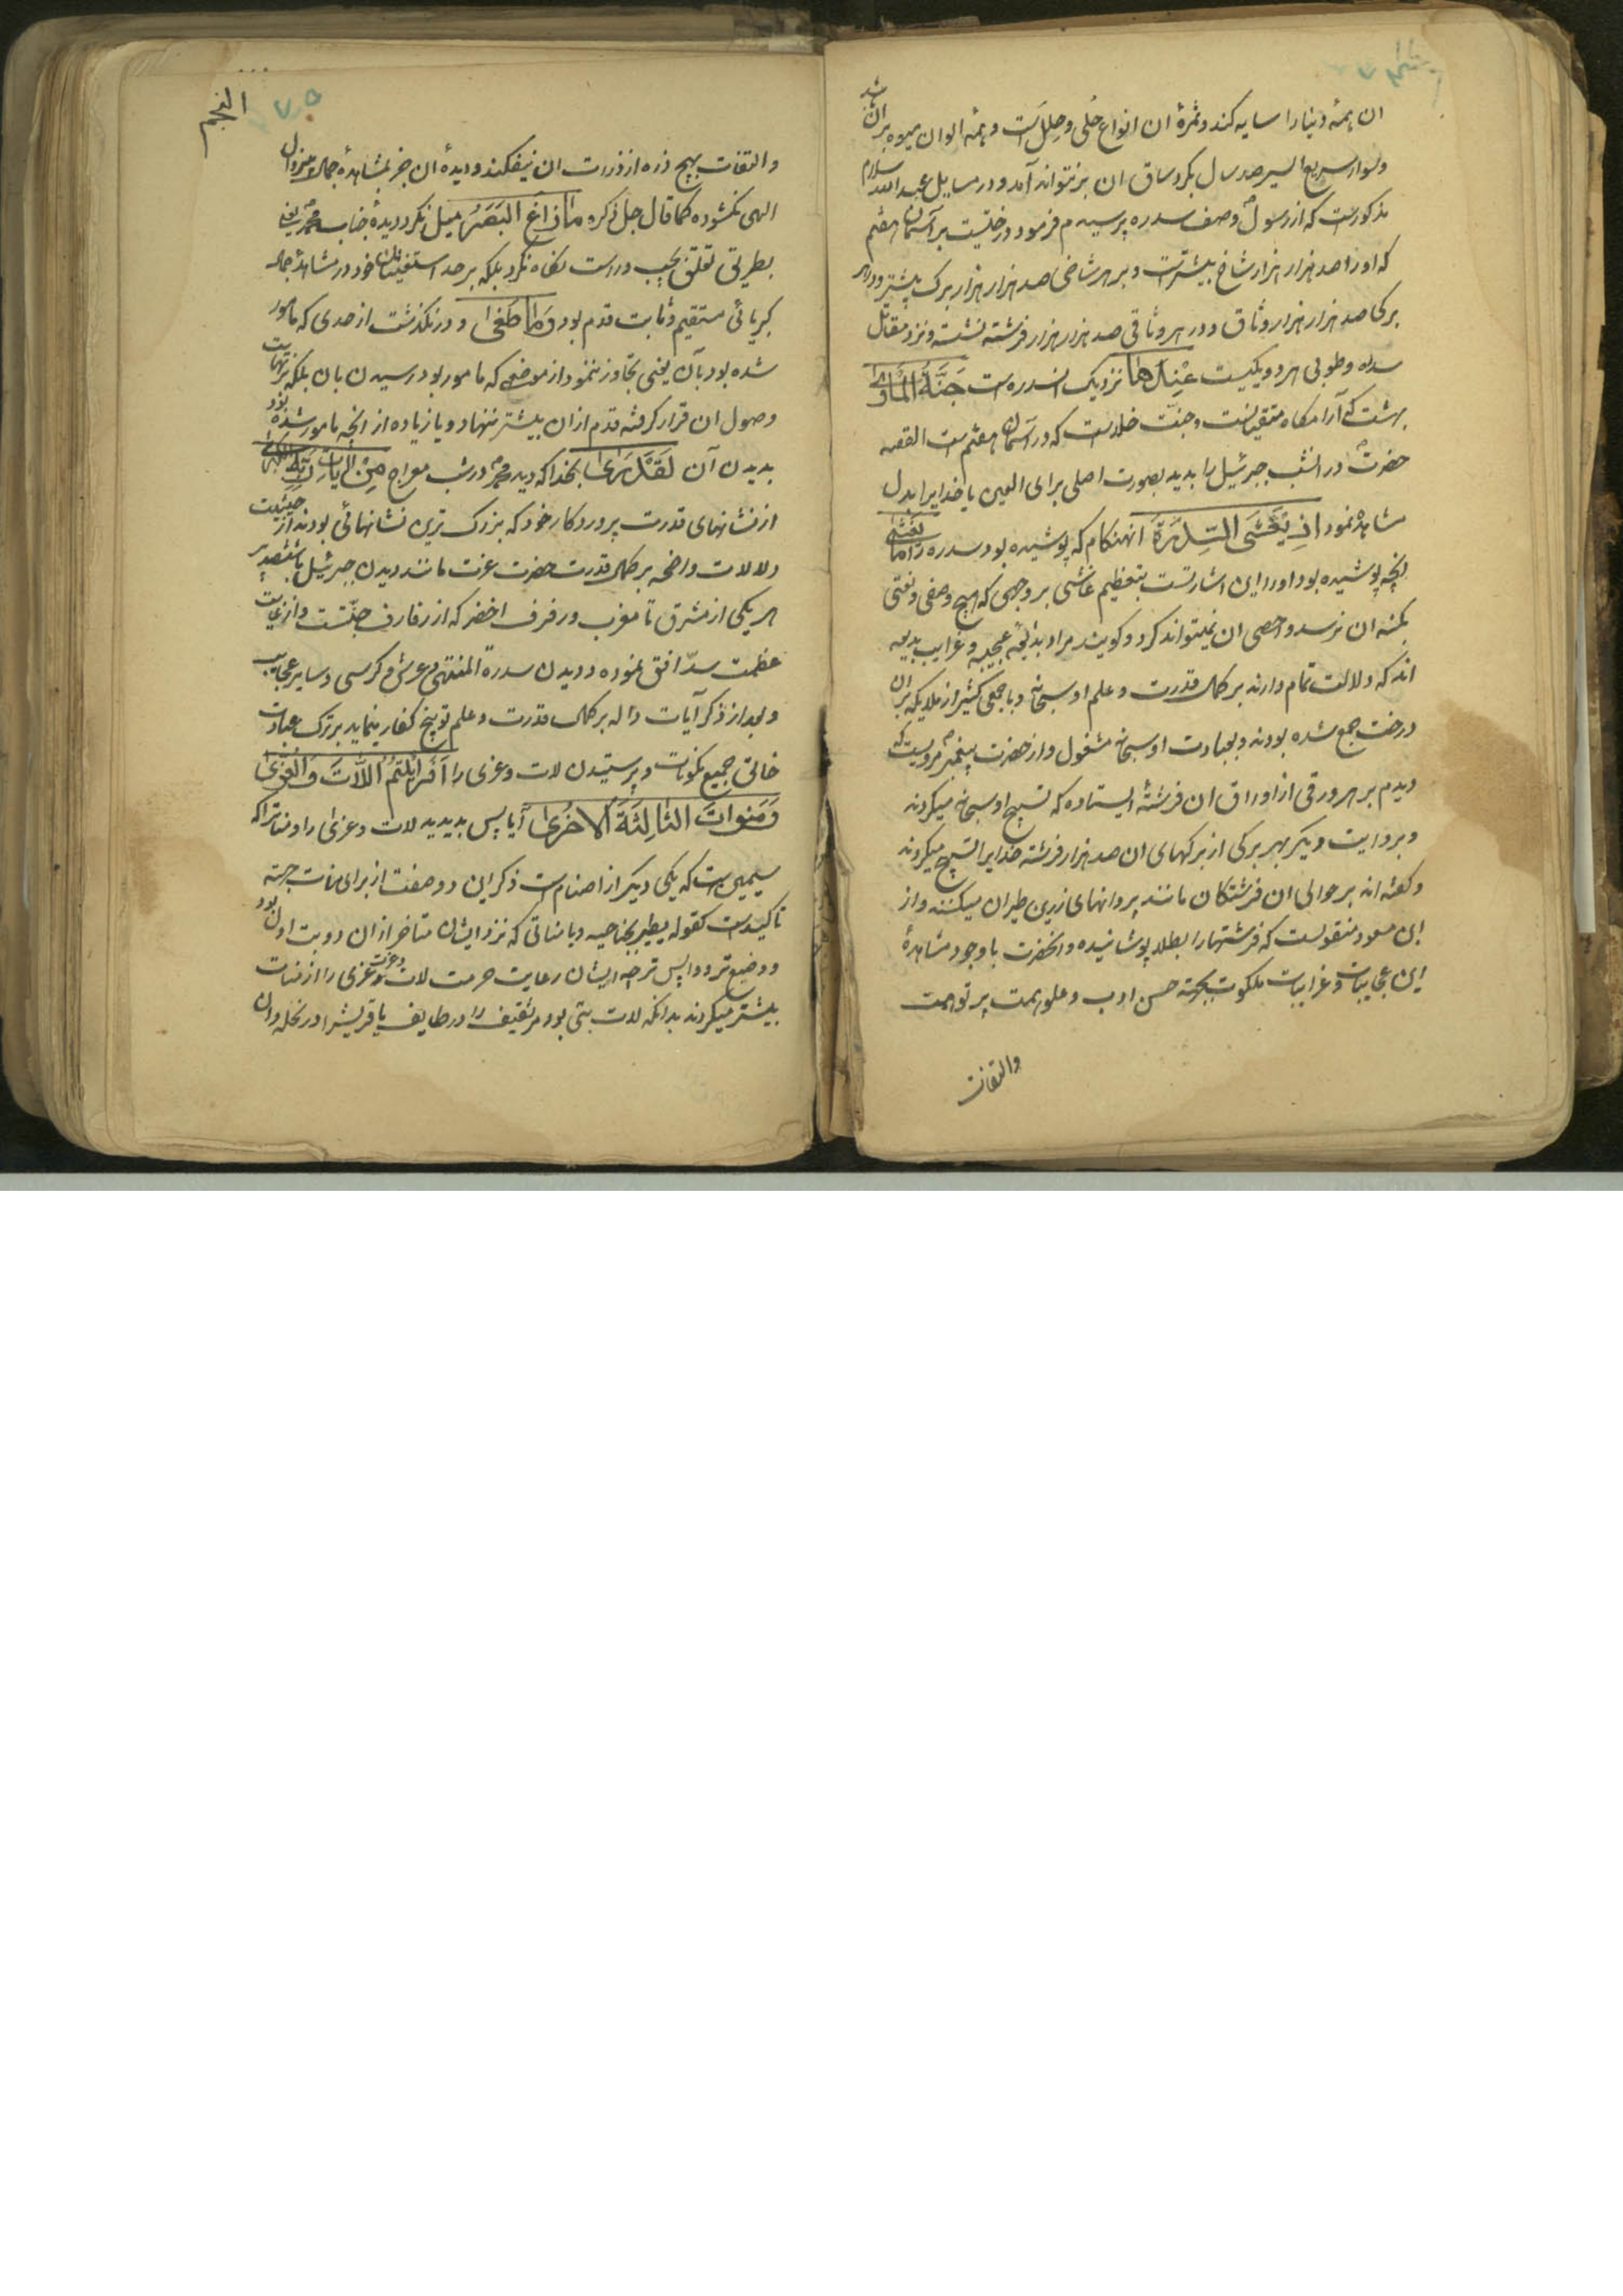 ان همه دنیا را سایه کند و ثمرهٔ ان انواع حُلی و حِلل است و همه الوان میوه بر ان شد
و سوار سریع السیر صد سال بکرد ساق ان برنتواند آمد و در مسایل عبد الله سلام
مذکورست که از رسول وصف سدره پرسیدم فرمود درختیست بر آسمان هفتم
که او را صد هزار هزار شاخ بیشترست و بر هر شاخی صد هزار هزار برک بیشتر و در هر
برکی صد هزار هزار وثاق و در هر وثاقی صد هزار هزار فرشته نشسته و نزد مقاتل
سدره و طوبی هر دو یکیست عِنْدَهَا نزدیک ان سدره است جَنَّةُ الْمَأْوٰی
بهشت که آرامکاه متقیانست و جنّت خلدست که در آسمان هفتم است القصه
حضرت در انشب جبرئیل را بدید بصورت اصلی برای العین یا خدایرا بدل
مشاهده نمود اذ یَغْشَی السِّدْرَةَ انهنکام که پوشیده بود سدره را مَا یَغْشٰی
انچه پوشیده بود او را این اشارتست بتعظیم غاشی بر وجهی که هیچ وصفی و نعتی
بکنه ان نرسد و احصی ان نمیتواند کرد و کویند مراد بدایع عجیبه و غرایب بدیعه
اند که دلالت تمام دارند بر کمال قدرت و علم او سبحانه و با جمعی کثیر از ملایکه بر ان
درخت جمع شده بودند و بعبادت او سبحانه مشغول و از حضرت پیغمبر مرویست که
دیدم بر هر ورقی از اوراق ان فرشتهٔ ایستاده که تسبیح او سبحانه میکردند
و بروایت دیکر بهر برکی از برکهای ان صد هزار فرشته خدایرا تسبیح میکردند
و کفته اند بر حوالی ان فرشتکان مانند پروانهای زرین طیران میکنند و از
ابن مسعود منقولست که فرشتها را بطلا پوشانیده و انحضرت با وجود مشاهدهٔ
این عجایبات و غرایبات ملکوت بجهة حسن ادب و علو همت پرتو همت
والتفات
النجم
والتفات بهیچ ذره از ذرات ان نیفکند و دیدهٔ ان جز بمشاهدهٔ جمال
الهی نکشوده کما قال جل ذکره مَا زَاغَ الْبَصَرُ میل نکرد دیدهٔ جناب محمد یعنی
بطریق تعلق بچپ و راست نکاه نکرد بلکه بر حد استقامت خود در مشاهد جمال
کبریائی مستقیم و ثابت قدم بود وَمَا طَغٰی و در نکذشت از حدی که مامور
شده بود بآن یعنی تجاوز ننمود از موضعی که مامور بود برسیدن بان بلکه بر نهایت
وصول ان قرار کرفته قدم از ان بیشتر ننهاد و یا زیاده از انچه مامور شده بود
بدیدن آن لَقَدْ رَاٰی بخدا که دید محمد در شب معراج مِنْ اٰیَاتِ رَبِّهِ الْکُبْرٰی
از نشانهای قدرت پروردکار خود که بزرک ترین نشانهائی بودند از حیثیت
دلالات واضحه بر کمال قدرت حضرت عزت مانند دیدن جبرئیل با ششصد پر
هر یکی از مشرق تا مغرب و رفرف اخضر که از رفارف جنّتست و از غایت
عظمت سدّ افق نموده و دیدن سدرة المنتهی و عرش و کرسی و سایر عجایب
و بعد از ذکر آیات داله بر کمال قدرت و علم توبیخ کفار مینماید بر ترک عبادت
خالق جمیع مکونات و پرستیدن لات و عزی را اَفَرَاَیْتُمُ اللَّاتَ وَالْعُزّٰی
وَمَنٰوةَ الثَّالِثَةَ الْاُخْرٰی آیا پس بدیدید لات و عزی را و مناترا که
سیمین است که یکی دیکر از اصنام است ذکر این دو صفت از برای منات جهة
تاکیدست کقوله یطیر بجناحیه و یا مناتی که نزد ایشان متاخر از ان دو بت اول بود
و وضیع تر و واپس تر چه ایشان رعایت حرمت لات و عزت عزی را از منات
بیشتر میکردند بدانکه لات بتی بود مر ثقیف را در طایف یا قریشرا در نخله و ان